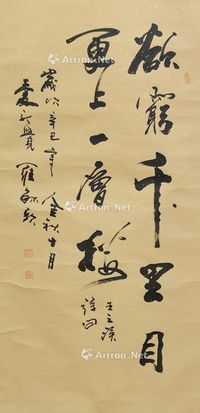 欲窮千里目
更上一層樓
王之渙
詩句
歲次辛巳年
金秋十月
Artron.Net